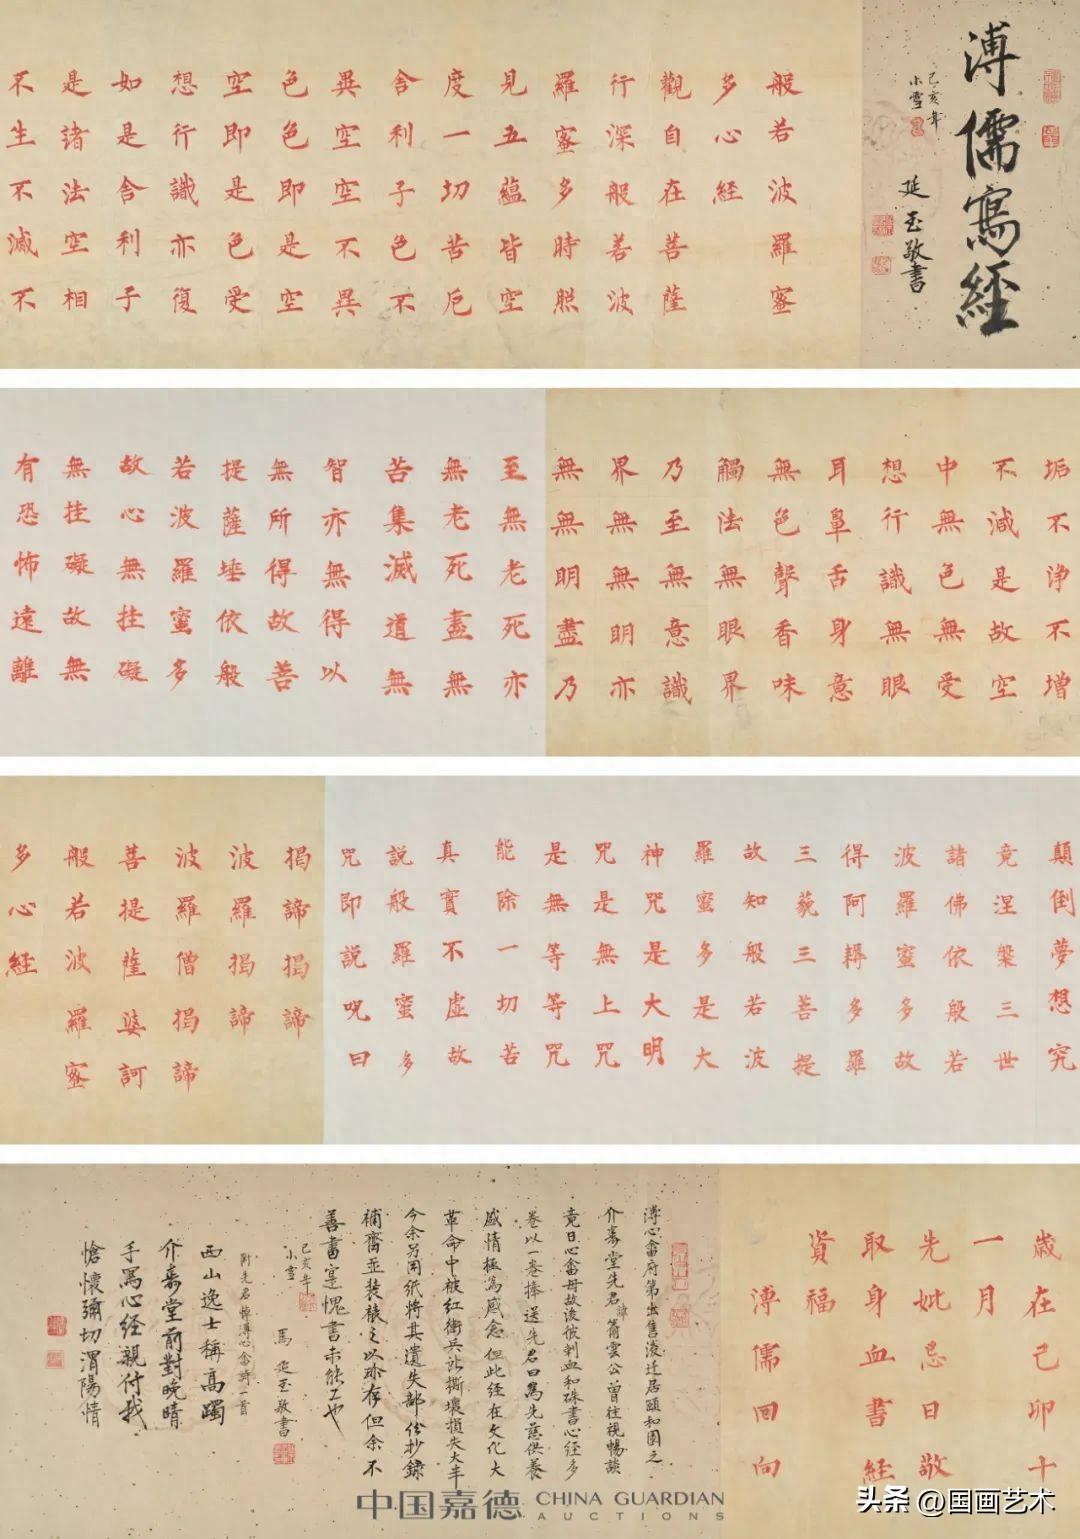 溥儒寫經
己亥年
小雪
延玉敬書
般若波羅蜜
多心經
觀自在菩薩
行深般若波
羅蜜多時照
見五蘊皆空
度一切苦厄
舍利子色不
異空空不異
色色即是空
空即是色受
想行識亦復
如是舍利子
是諸法空相
不生不滅不
垢不淨不增
不減是故空
中無色無受
想行識無眼
耳鼻舌身意
無色聲香味
觸法無眼界
乃至無意識
界無無明亦
無無明盡乃
至無老死亦
無老死盡無
苦集滅道無
智亦無得以
無所得故菩
提薩埵依般
若波羅蜜多
故心無挂礙
無挂礙故無
有恐怖遠離
顛倒夢想究
竟涅槃三世
諸佛依般若
波羅蜜多故
得阿耨多羅
三藐三菩提
故知般若波
羅蜜多是大
神咒是大明
咒是無上咒
是無等等咒
能除一切苦
真實不虛故
說般羅蜜多
咒即說呪曰
揭諦揭諦
波羅揭諦
波羅僧揭諦
菩提薩婆訶
般若波羅蜜
多心經
歲在己卯十
一月
先妣忌日敬
取身血書經
資福
溥儒回向
溥心畬府第出售後迁居頤和園之
介壽堂先君諱箾雲公曾往視暢談
竟日心畬母故後彼刺血和硃書心经多
卷以一卷捧送先君曰為先慈供養
感情極為感念但此经在文化大
革命中被紅衛兵讣撕壞損失大半
今余另用紙將其遺失部份抄錄
補齊並装裱之以珍存但余不
善書寔愧書未能工也
己亥年
小雪
馬延玉敬書
附先君悼溥心畬詩一首
西山逸士稱高躅
介壽堂前對晚晴
手寫心經親付我
愴懷彌切渭陽情
中国嘉德 CHINA GUARDIAN
AUCTIONS
头条 @国画艺术